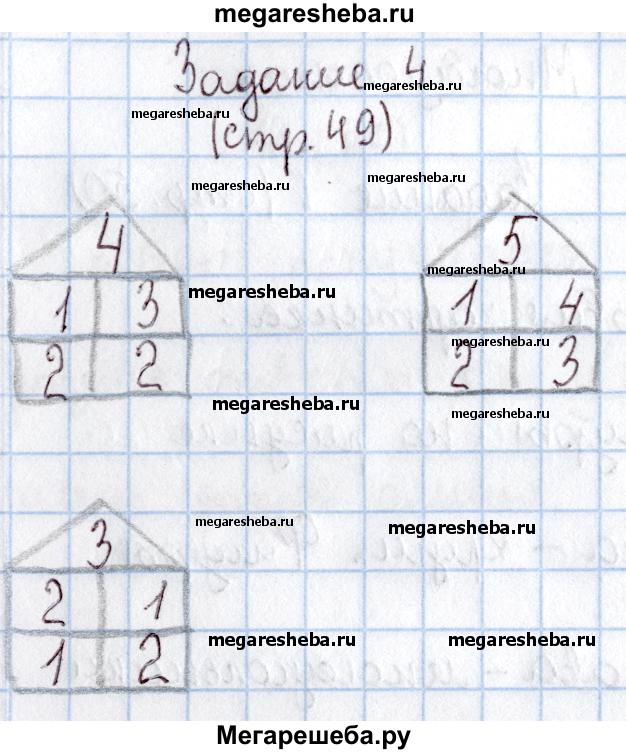 megaresheba.ru
Задание 4
megaresheba.ru
megaresheba.ru
(стр. 49)
megaresheba.ru
megaresheba.ru
4
5
megaresheba.ru
1 3
megaresheba.ru
1 4
2 2
megaresheba.ru
2 3
megaresheba.ru
megaresheba.ru
3
megaresheba.ru
megaresheba.ru
2 1
1 2
megaresheba.ru
megaresheba.ru
Мегарешеба.ру